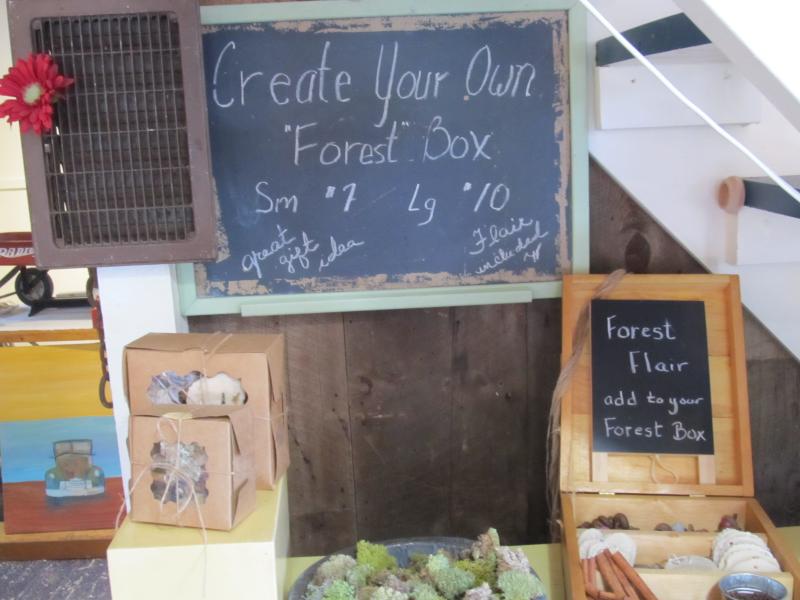 Create Your Own
"Forest" Box
Sm $7 Lg $10
great
gift
idea
Flair
included
Forest
Flair
add to your
Forest Box